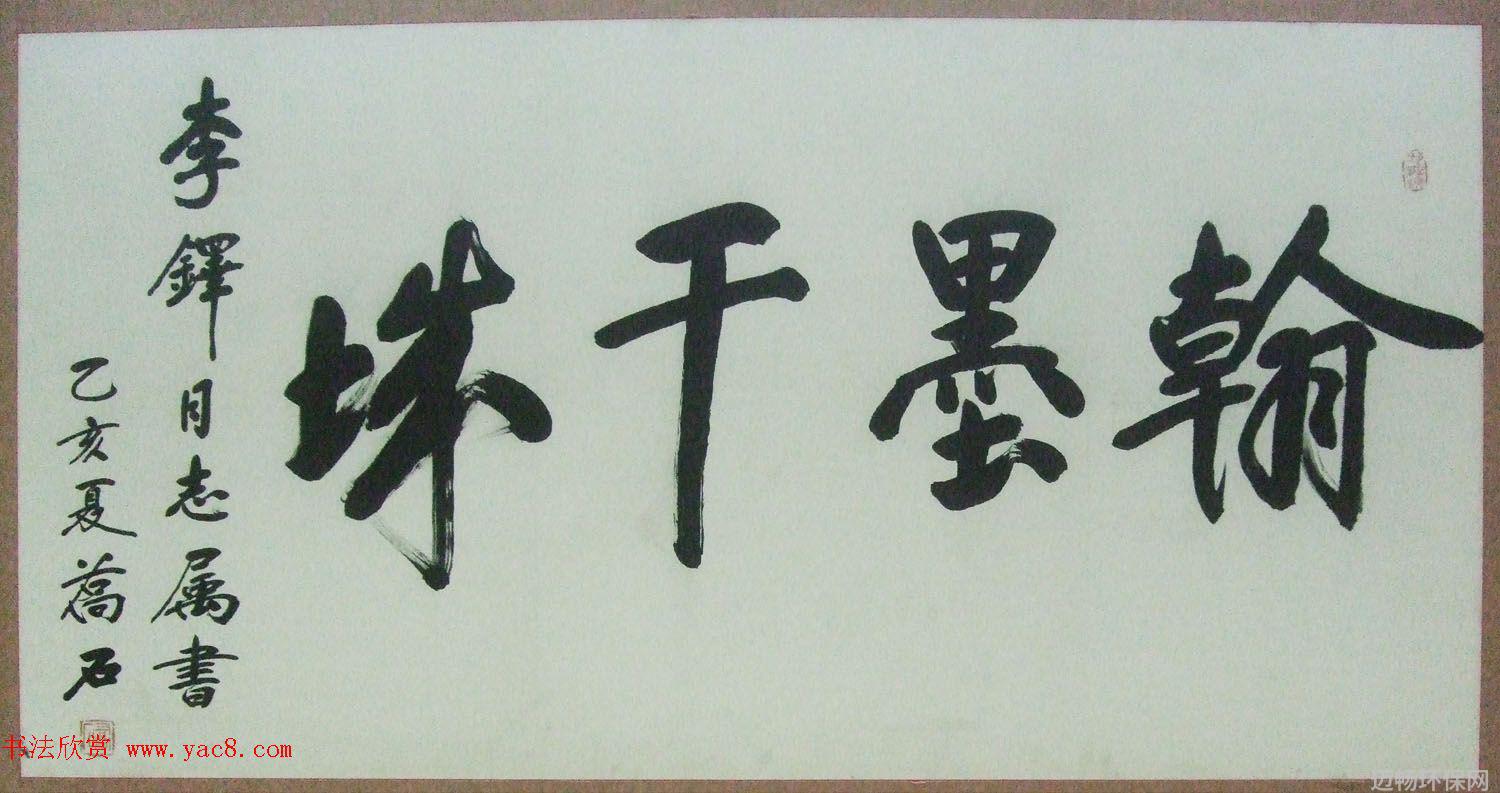 翰墨千
李鐸同志属書
乙亥夏喬石
书法欣赏 www.yac8.com
迈畅环保网